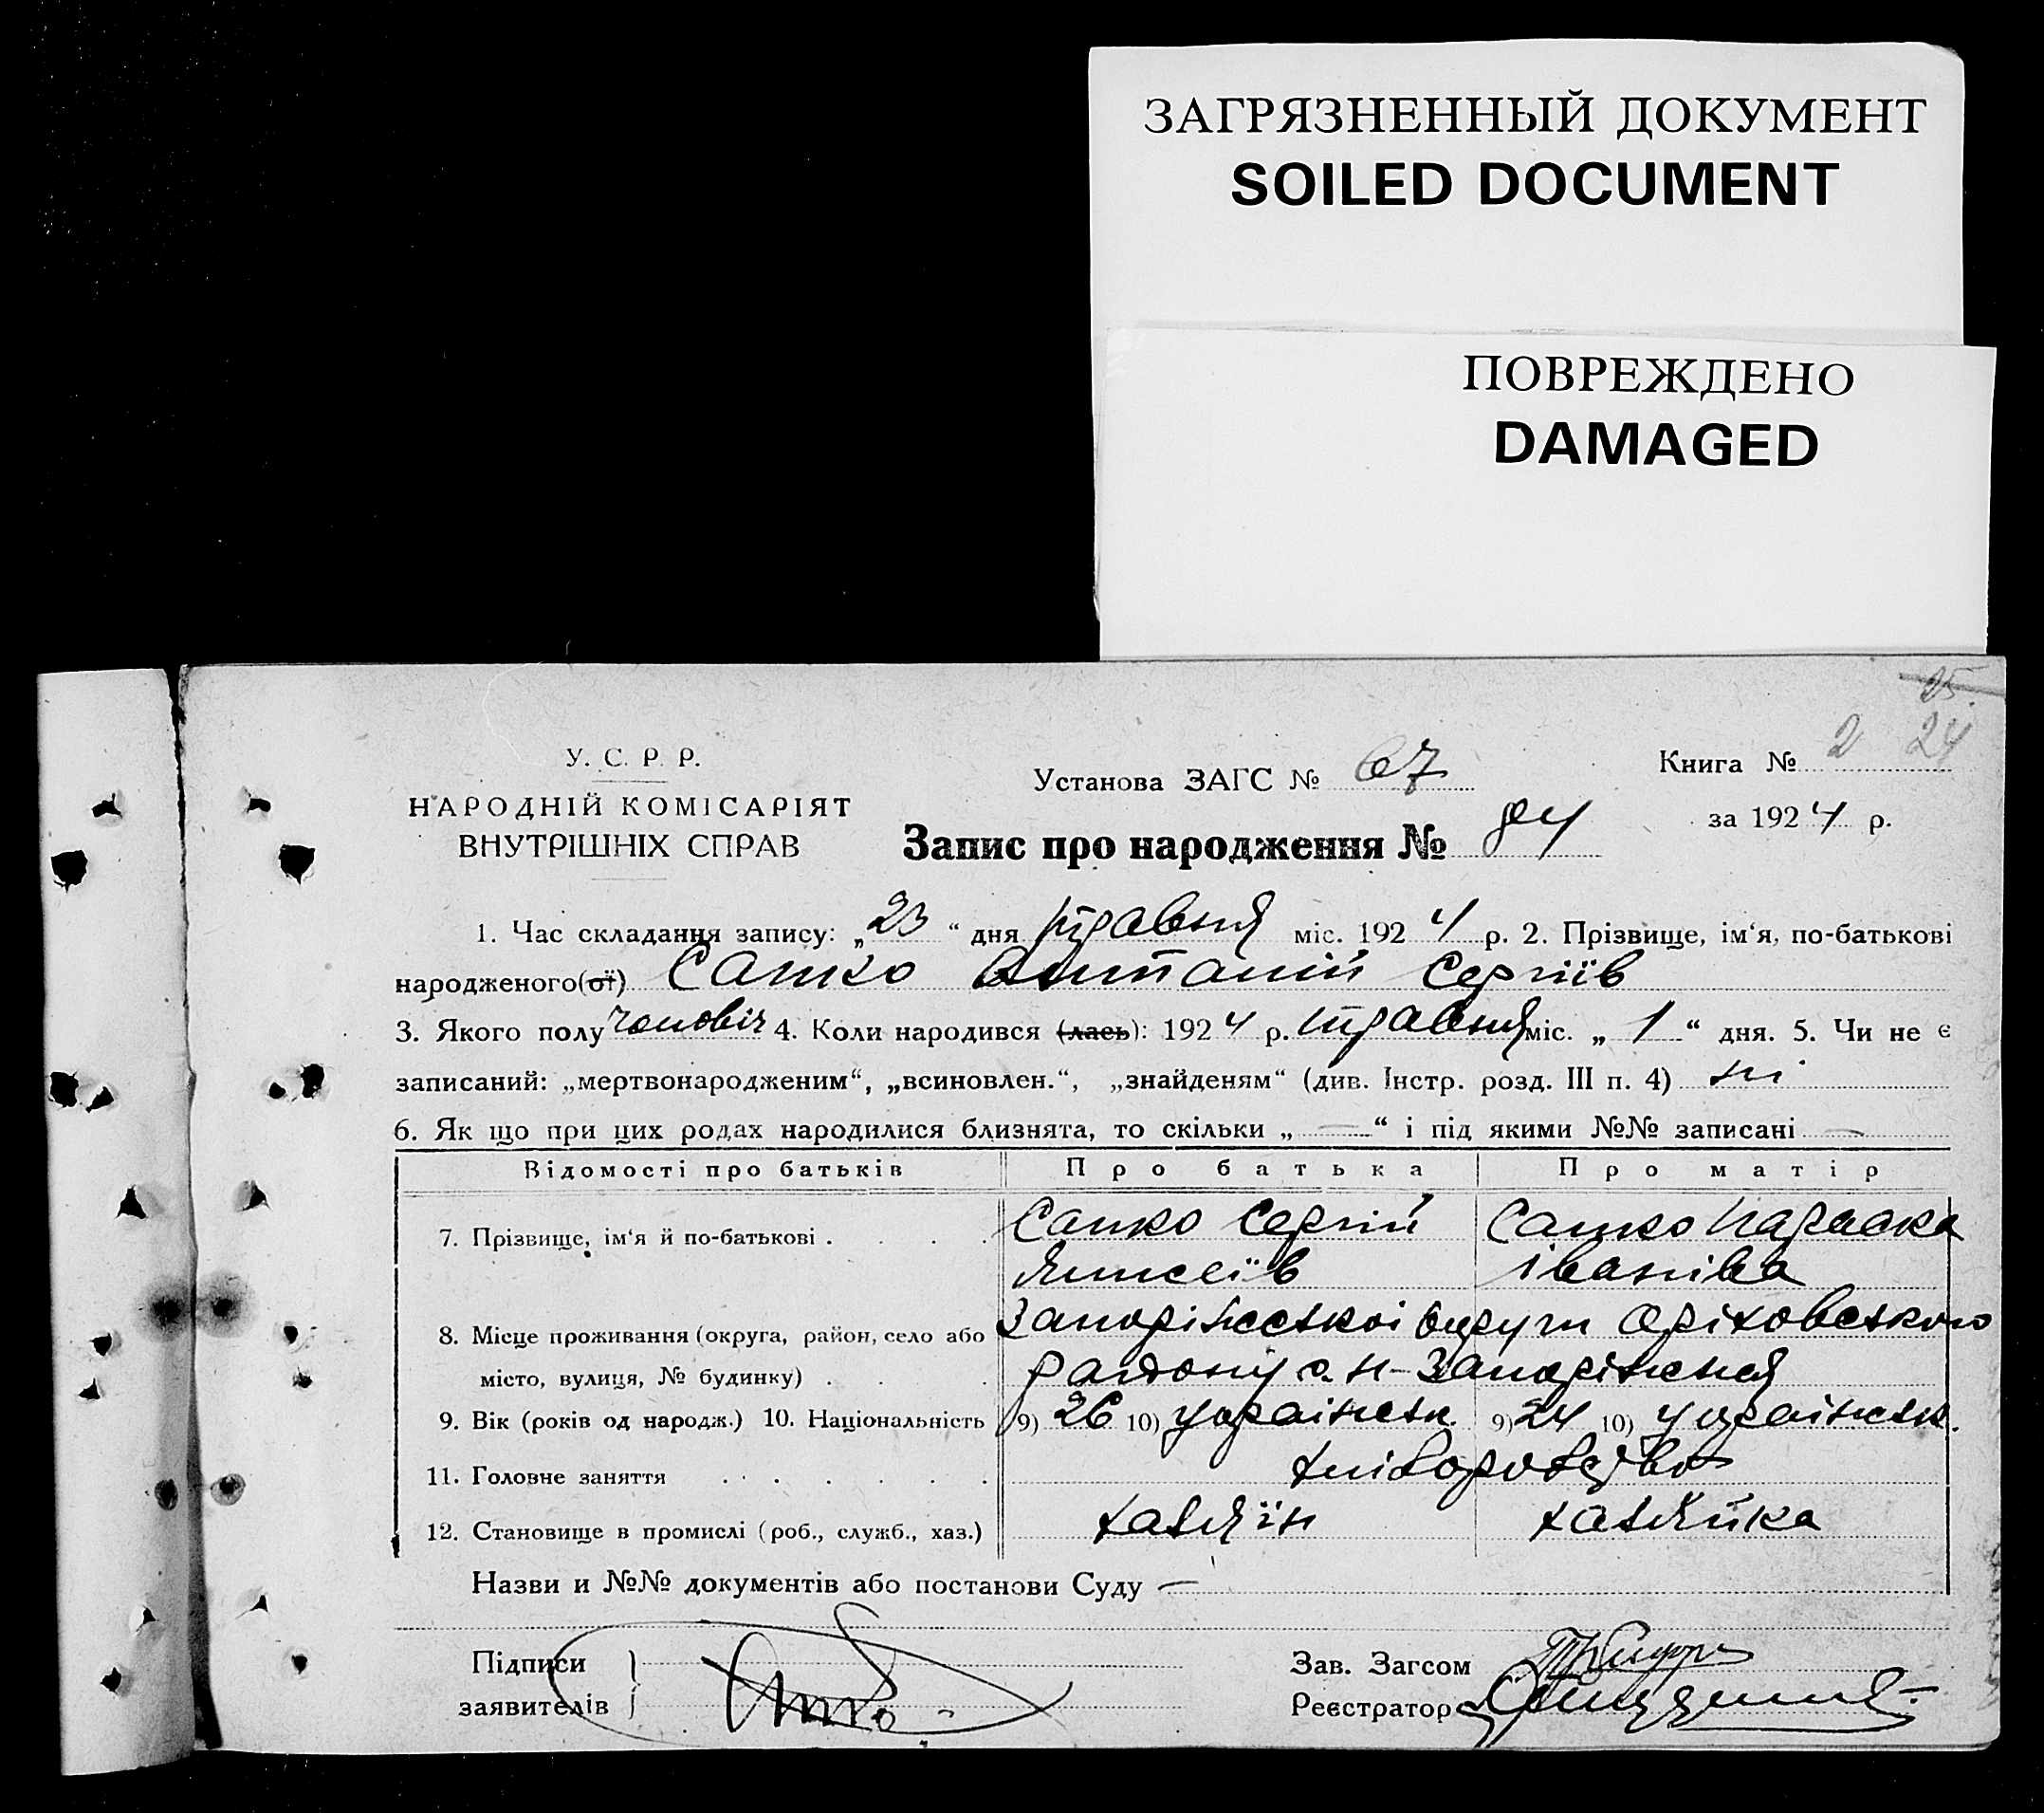 ЗАГРЯЗНЕННЫЙ ДОКУМЕНТ
SOILED DOCUMENT
ПОВРЕЖДЕНО
DAMAGED
25
У. С. Р. Р.
Установа ЗАГС № 67
Книга № 2 24
НАРОДНІЙ КОМІСАРІЯТ
ВНУТРІШНІХ СПРАВ
Запис про народження № 84
за 1924 р.
1. Час складання запису: „23“ дня травня міс. 1924 р. 2. Прізвище, ім‘я, по-батькові
народженого(ої) Сашко Антаній Сергіїв
3. Якого полу чоловіч 4. Коли народився (лась): 1924 р. травня міс. „1“ дня. 5. Чи не є
записаний: „мертвонародженим“, „всиновлен.“, „знайденям“ (див. Інстр. розд. III п. 4) ні
6. Як що при цих родах народилися близнята, то скільки „—“ і під якими №№ записані —
Відомості про батьків Про батька Про матір
7. Прізвище, ім‘я й по-батькові . . . . Сашко Сергій Сашко Параска
Іванівна
8. Місце проживання (округа, район, село або Запоріжської округи Оріховського
місто, вулиця, № будинку) . . . району с. н-Запоріжжя
9. Вік (років од народж.) 10. Національність 9) 26 10) українськ. 9) 24 10) українськ.
11. Головне заняття . . . . . . хліборобство
12. Становище в промислі (роб., служб., хаз.) хазяїн хазяйка
Назви и №№ документів або постанови Суду —
Підписи
заявителів
Зав. Загсом
Реєстратор